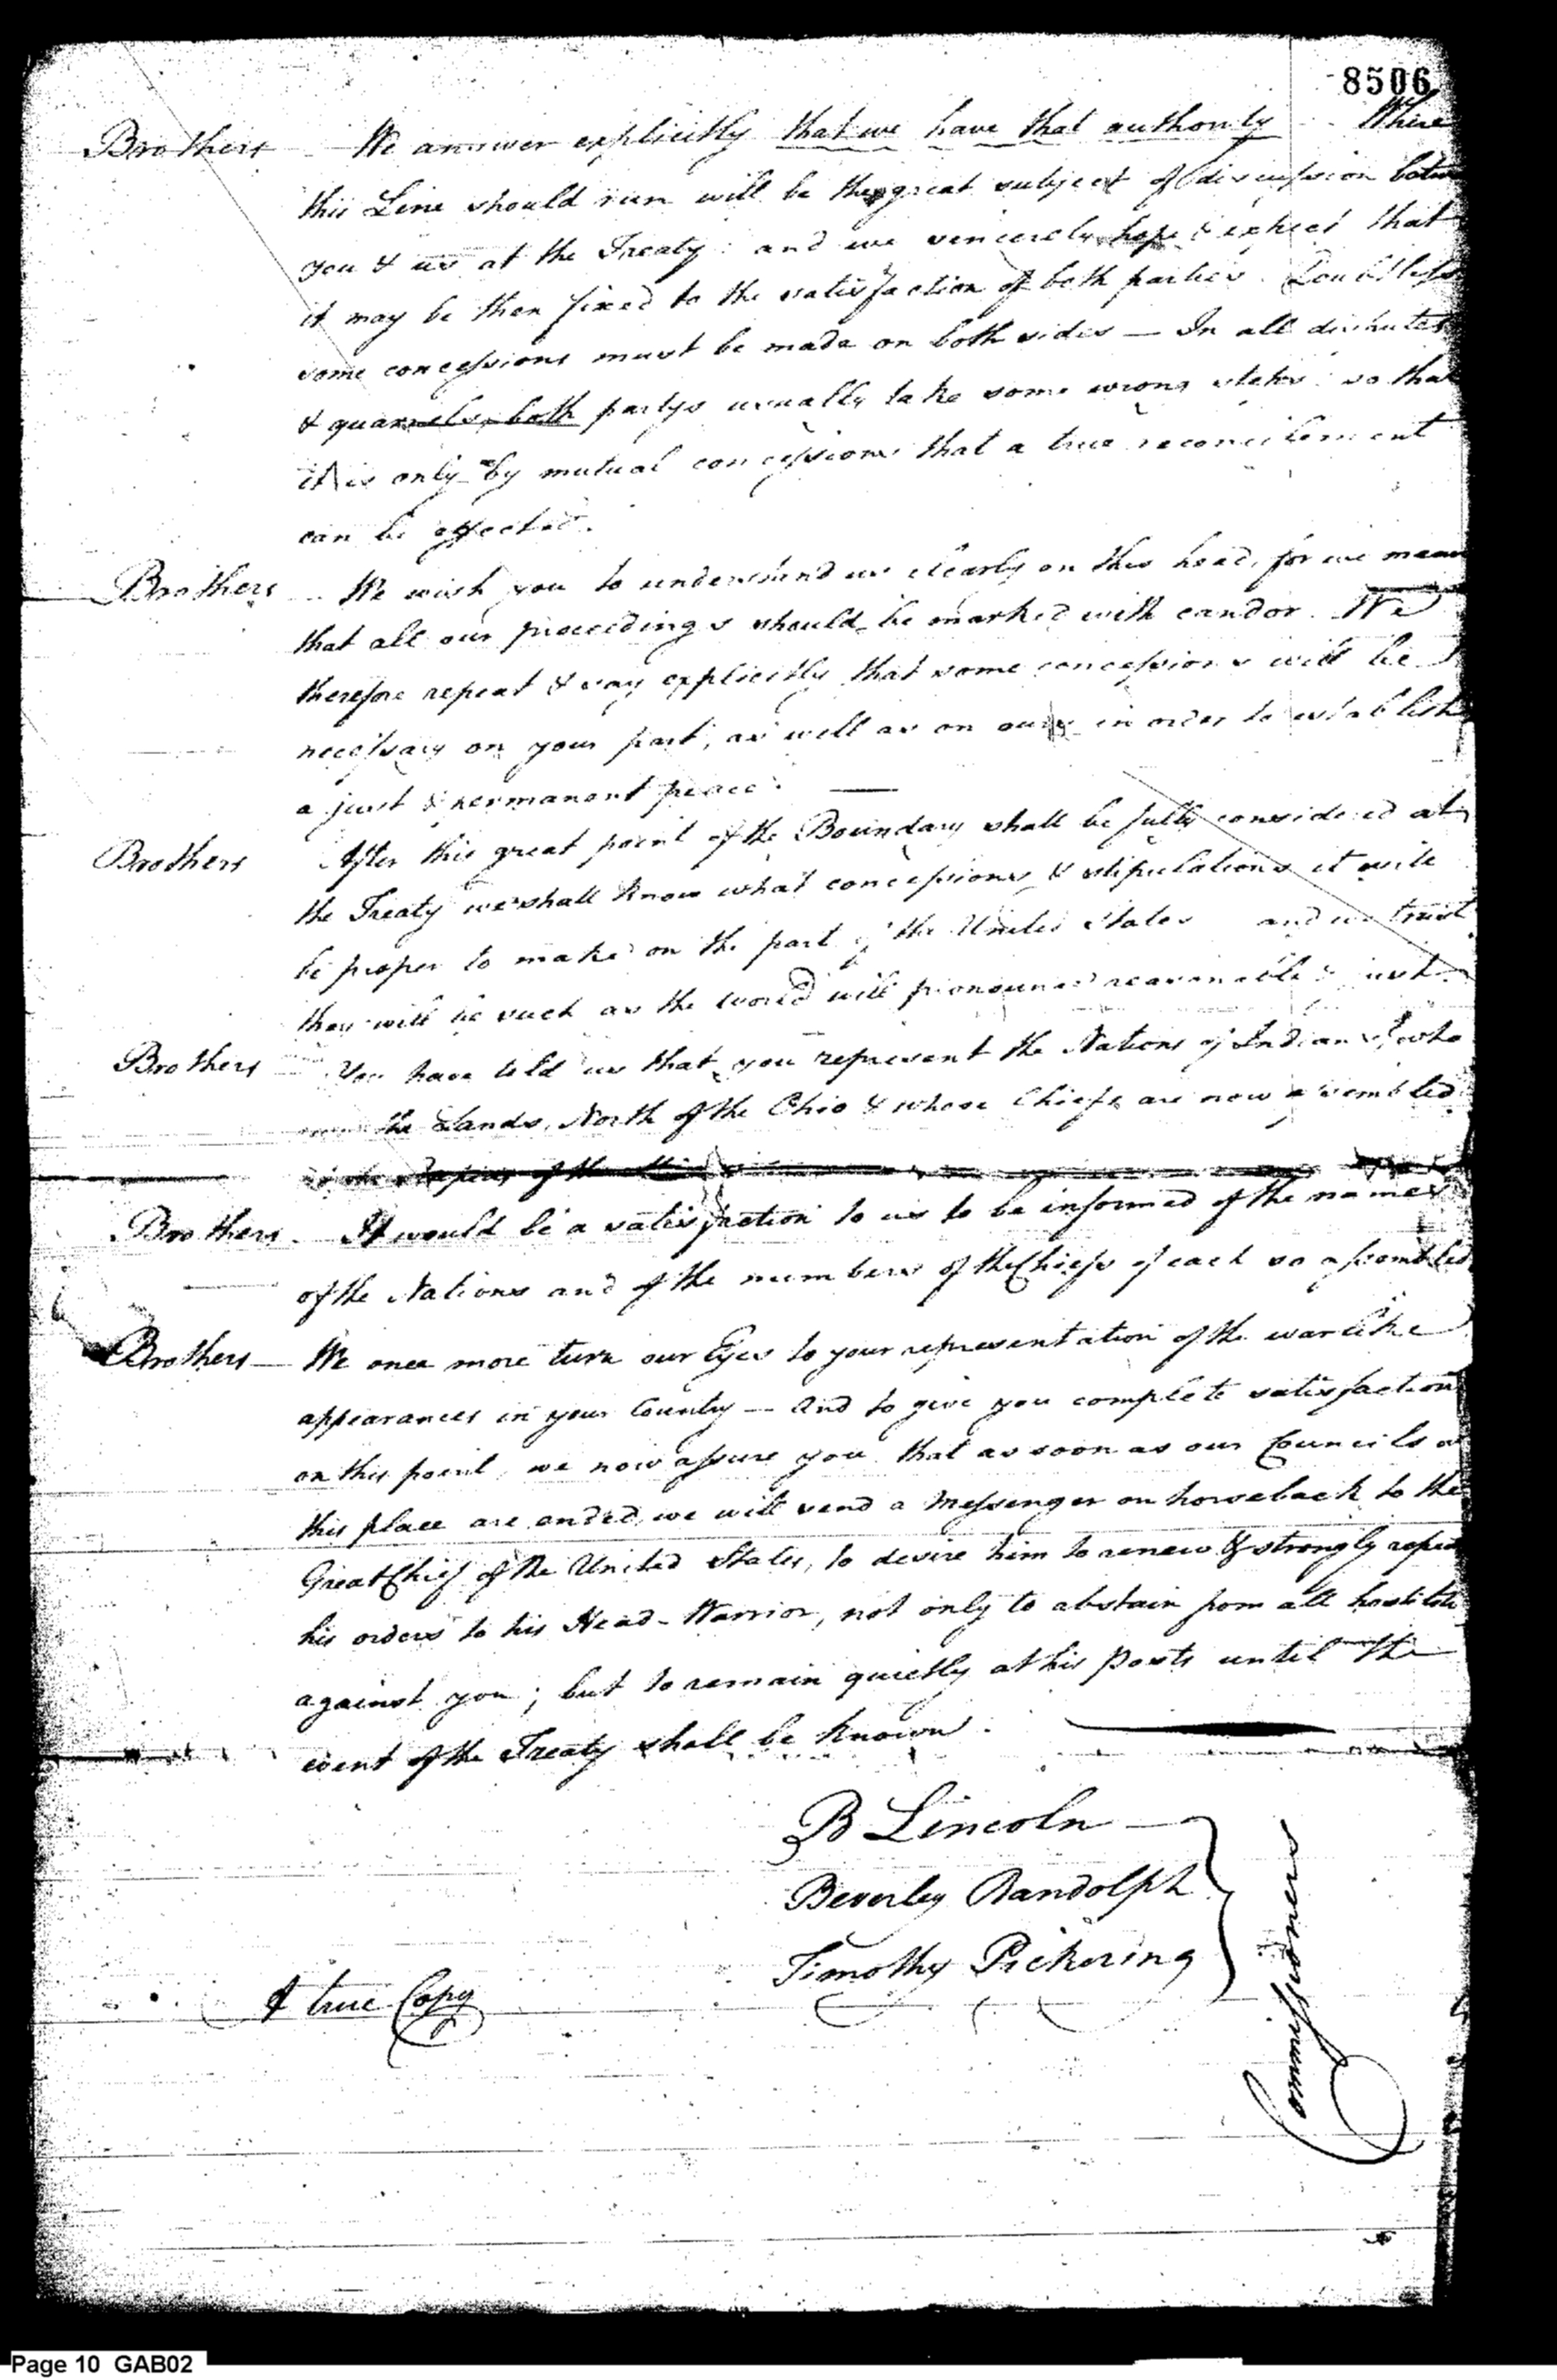 8506
Brothers We answer explicitly that we have that authority Where
this Line should run will be the great subject of discussion betw
you & us at the Treaty: and we sincerely hope & expect that
it may be then fixed to the satisfaction of both parties. Doubtless
some concessions must be made on both sides — In all disputes
& quarrels, both partys usually take some wrong steps: so that
it is only by mutual concessions that a true reconcilement
can be effected.
Brothers We wish you to understand us clearly on this head, for we mean
that all our proceedings should be marked with candor. We
therefore repeat & say explicitly that some concessions will be
necessary on your part, as well as on ours in order to establish
a just & permanent peace. —
Brothers After this great point of the Boundary shall be fully considered at
the Treaty we shall know what concessions & stipulations it will
be proper to make on the part of the United States and we trust
they will be such as the world will pronounce reasonable & just
Brothers You have told us that you represent the Nations of Indians who
the Lands, North of the Ohio & whose Chiefs are now assembled
Rapids of the
Brothers. It would be a satisfaction to us to be informed of the names
of the Nations and of the numbers of the Chiefs of each so assembled
Brothers — We once more turn our Eyes to your representation of the warlike
appearances in your Country — and to give you complete satisfaction
on this point, we now assure you that as soon as our Councils at
this place are ended, we will send a Messenger on horseback to the
Great Chief of the United States, to desire him to renew & strongly repea
his orders to his Head-Warrior, not only to abstain from all hostiliti
against you; but to remain quietly at his Posts until the
event of the Treaty shall be known.
B Lincoln —
Beverley Randolph
Timothy Pickering
Commissioners
A true Copy
Page 10 GAB02